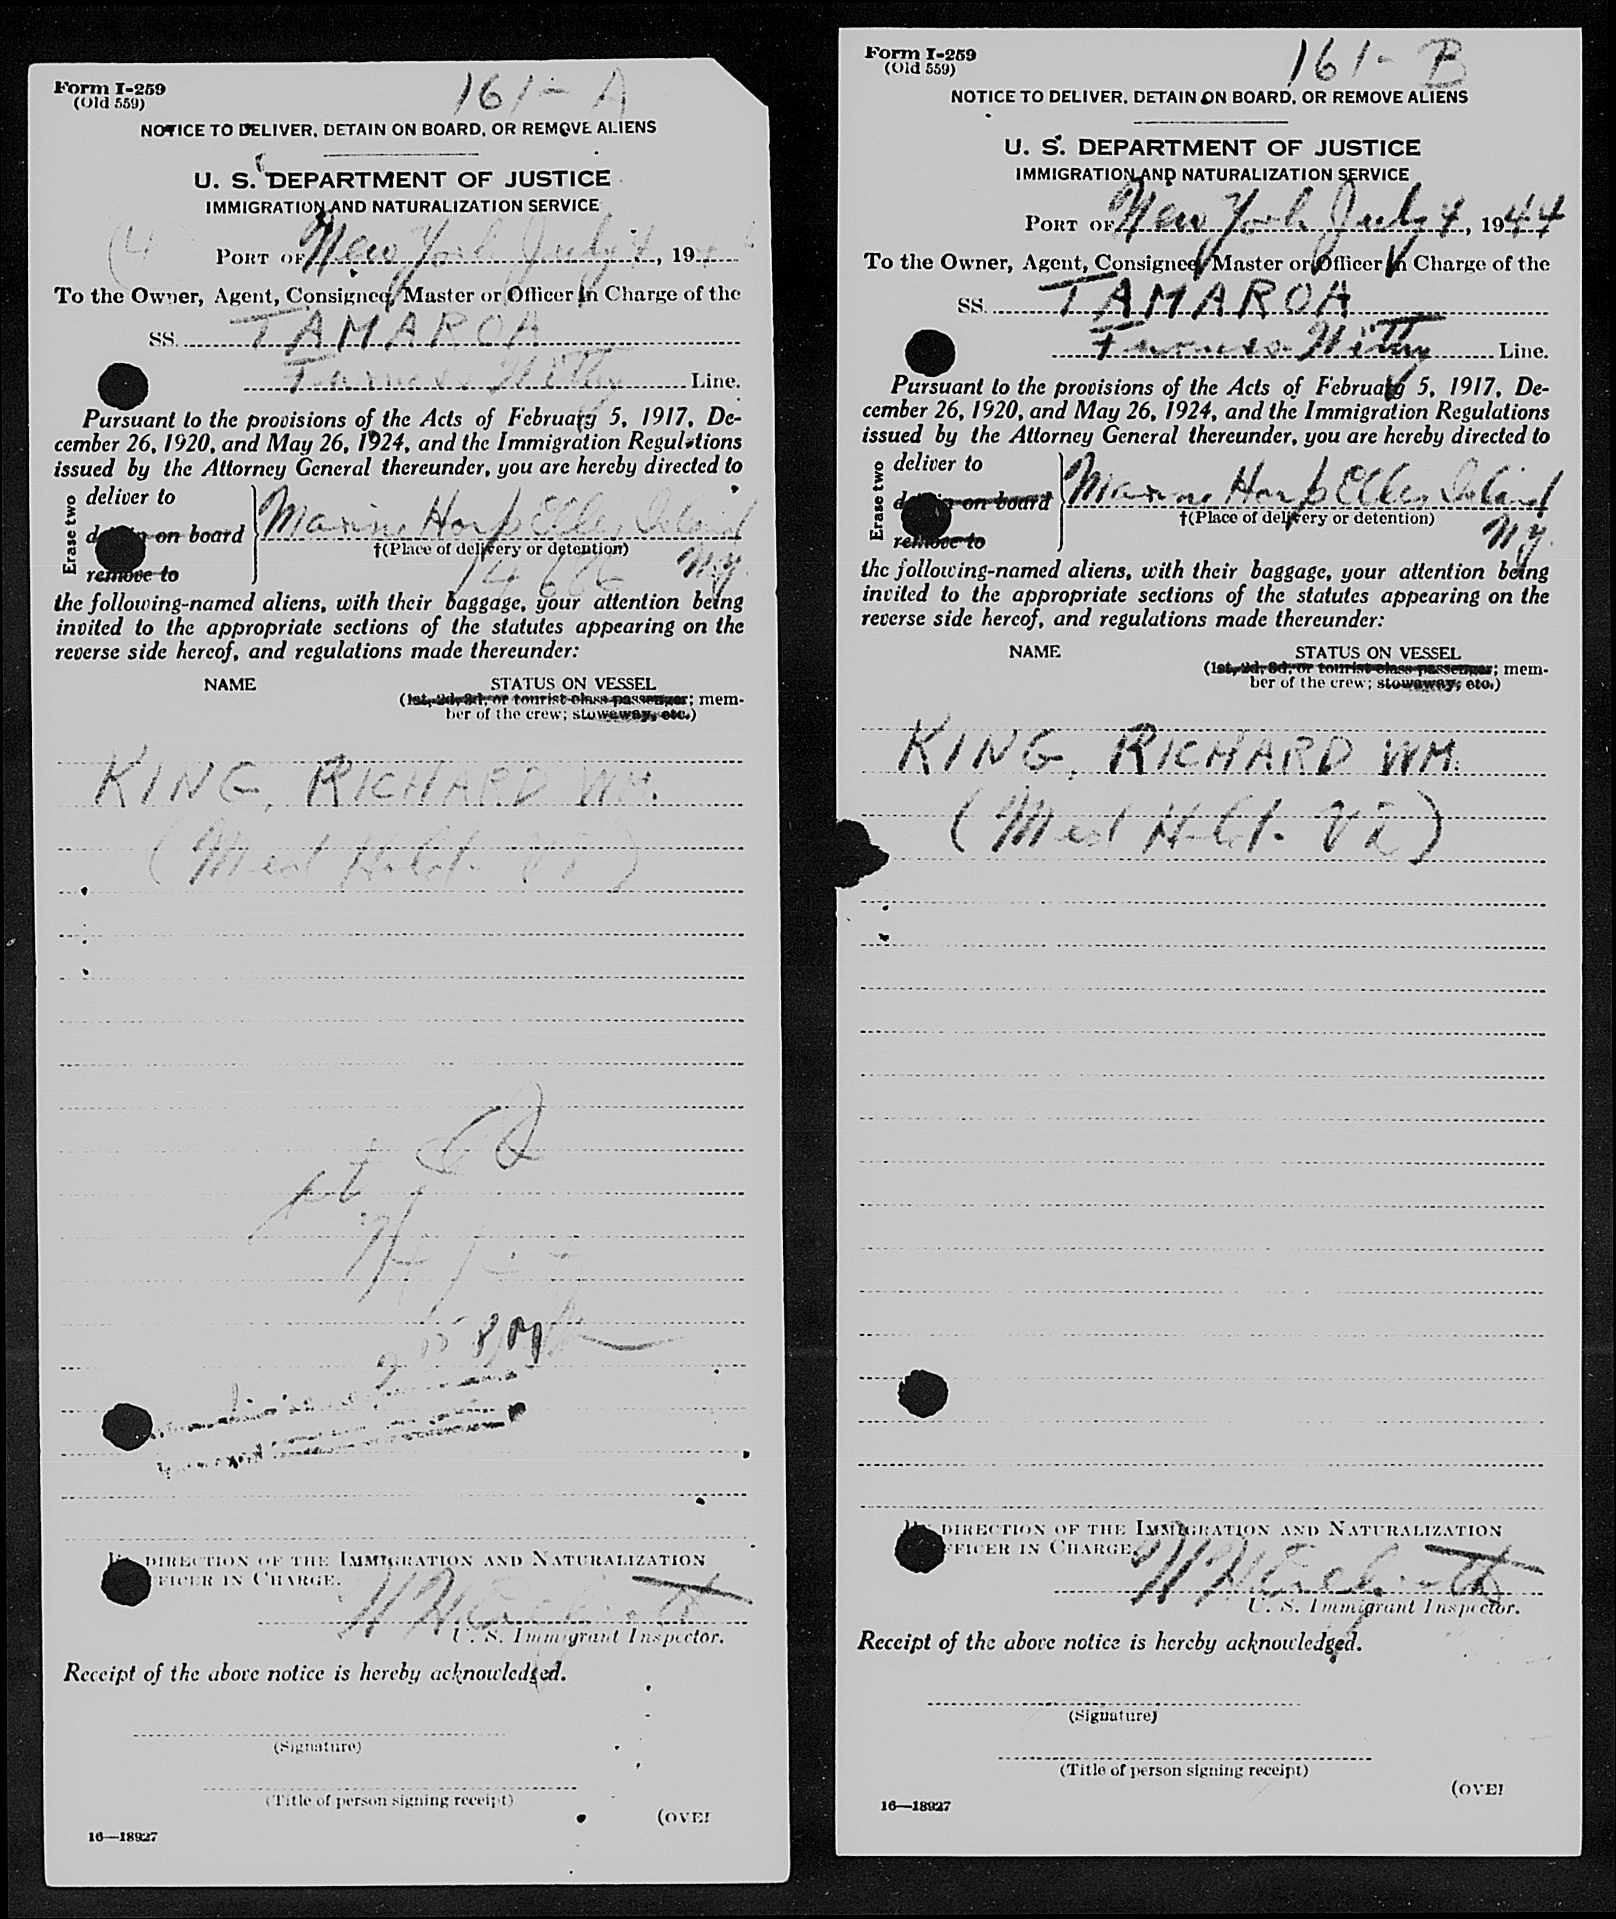 Form I-259
(Old 559)
161-A
NOTICE TO DELIVER, DETAIN ON BOARD, OR REMOVE ALIENS
U. S. DEPARTMENT OF JUSTICE
IMMIGRATION AND NATURALIZATION SERVICE
PORT OF New York July 4, 194
To the Owner, Agent, Consignee, Master or Officer in Charge of the
SS. TAMAROA
Furness Withy Line.
Pursuant to the provisions of the Acts of February 5, 1917, De-
cember 26, 1920, and May 26, 1924, and the Immigration Regulations
issued by the Attorney General thereunder, you are hereby directed to
Erase two
deliver to
on board
remove to
Marine Hosp Ellis Island
†(Place of delivery or detention)
N.Y.
the following-named aliens, with their baggage, your attention being
invited to the appropriate sections of the statutes appearing on the
reverse side hereof, and regulations made thereunder:
NAME STATUS ON VESSEL
(1st, 2d, 3d, or tourist class passenger; mem-
ber of the crew; stowaway, etc.)
KING, RICHARD WM.
(Med Hold.
BY DIRECTION OF THE IMMIGRATION AND NATURALIZATION
OFFICER IN CHARGE.
U. S. Immigrant Inspector.
Receipt of the above notice is hereby acknowledged.
(Signature)
(Title of person signing receipt)
(OVER
16—18927
Form I-259
(Old 559)
161-B
NOTICE TO DELIVER, DETAIN ON BOARD, OR REMOVE ALIENS
U. S. DEPARTMENT OF JUSTICE
IMMIGRATION AND NATURALIZATION SERVICE
PORT OF New York July 4, 1944
To the Owner, Agent, Consignee, Master or Officer in Charge of the
SS. TAMAROA
Furness Withy Line.
Pursuant to the provisions of the Acts of February 5, 1917, De-
cember 26, 1920, and May 26, 1924, and the Immigration Regulations
issued by the Attorney General thereunder, you are hereby directed to
Erase two
deliver to
on board
remove to
Marine Hosp Ellis Island
†(Place of delivery or detention)
N.Y.
the following-named aliens, with their baggage, your attention being
invited to the appropriate sections of the statutes appearing on the
reverse side hereof, and regulations made thereunder:
NAME STATUS ON VESSEL
(1st, 2d, 3d, or tourist class passenger; mem-
ber of the crew; stowaway, etc.)
KING, RICHARD WM.
(Med Hold.
BY DIRECTION OF THE IMMIGRATION AND NATURALIZATION
OFFICER IN CHARGE.
U. S. Immigrant Inspector.
Receipt of the above notice is hereby acknowledged.
(Signature)
(Title of person signing receipt)
(OVER
16—18927